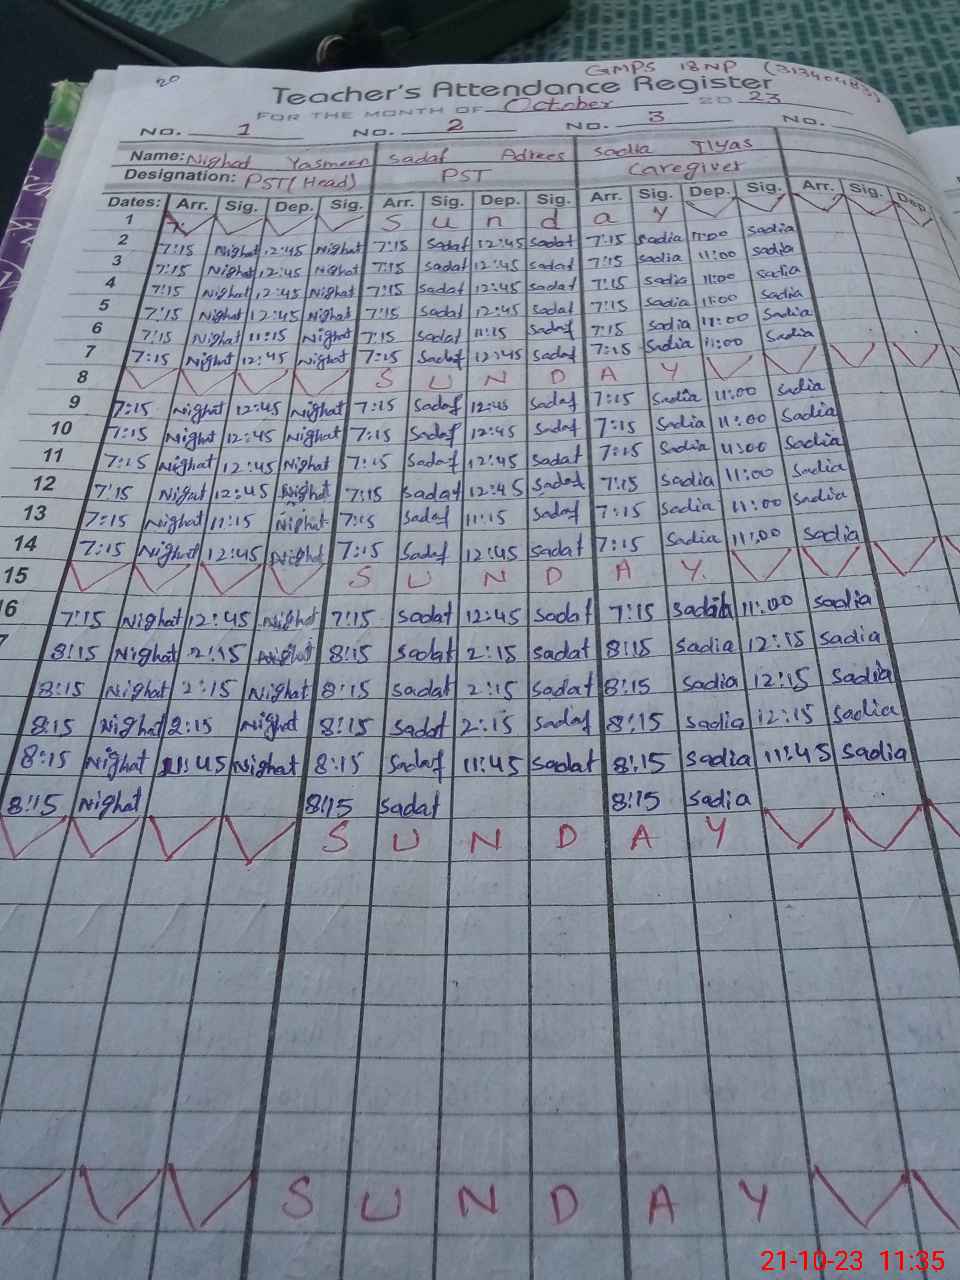 20
GMPS 18NP (31340483)
Teacher's Attendance Register
FOR THE MONTH OF October 20 23
NO. 1 NO. 2 NO. 3 NO.
Name: Nighat Yasmeen Sadaf Adrees Sadia Ilyas
Designation: PST (Head) PST Caregiver
Dates: Arr. Sig. Dep. Sig. Arr. Sig. Dep. Sig. Arr. Sig. Dep. Sig. Arr. Sig. Dep.
1 S u n d a y
2 7:15 Nighat 12:45 Nighat 7:15 Sadaf 12:45 Sadaf 7:15 Sadia 11:00 Sadia
3 7:15 Nighat 12:45 Nighat 7:15 Sadaf 12:45 Sadaf 7:15 Sadia 11:00 Sadia
4 7:15 Nighat 12:45 Nighat 7:15 Sadaf 12:45 Sadaf 7:15 Sadia 11:00 Sadia
5 7:15 Nighat 12:45 Nighat 7:15 Sadaf 12:45 Sadaf 7:15 Sadia 11:00 Sadia
6 7:15 Nighat 11:15 Nighat 7:15 Sadaf 11:15 Sadaf 7:15 Sadia 11:00 Sadia
7 7:15 Nighat 12:45 Nighat 7:15 Sadaf 12:45 Sadaf 7:15 Sadia 11:00 Sadia
8 S U N D A Y
9 7:15 Nighat 12:45 Nighat 7:15 Sadaf 12:45 Sadaf 7:15 Sadia 11:00 Sadia
10 7:15 Nighat 12:45 Nighat 7:15 Sadaf 12:45 Sadaf 7:15 Sadia 11:00 Sadia
11 7:15 Nighat 12:45 Nighat 7:15 Sadaf 12:45 Sadaf 7:15 Sadia 11:00 Sadia
12 7:15 Nighat 12:45 Nighat 7:15 Sadaf 12:45 Sadaf 7:15 Sadia 11:00 Sadia
13 7:15 Nighat 11:15 Nighat 7:15 Sadaf 11:15 Sadaf 7:15 Sadia 11:00 Sadia
14 7:15 Nighat 12:45 Nighat 7:15 Sadaf 12:45 Sadaf 7:15 Sadia 11:00 Sadia
15 S U N D A Y
6 7:15 Nighat 12:45 Nighat 7:15 Sadaf 12:45 Sadaf 7:15 Sadia 11:00 Sadia
7 8:15 Nighat 2:15 Nighat 8:15 Sadaf 2:15 Sadaf 8:15 Sadia 12:15 Sadia
8:15 Nighat 2:15 Nighat 8:15 Sadaf 2:15 Sadaf 8:15 Sadia 12:15 Sadia
8:15 Nighat 2:15 Nighat 8:15 Sadaf 2:15 Sadaf 8:15 Sadia 12:15 Sadia
8:15 Nighat 11:45 Nighat 8:15 Sadaf 11:45 Sadaf 8:15 Sadia 11:45 Sadia
8:15 Nighat 8:15 Sadaf 8:15 Sadia
S U N D A Y
S U N D A Y
21-10-23 11:35